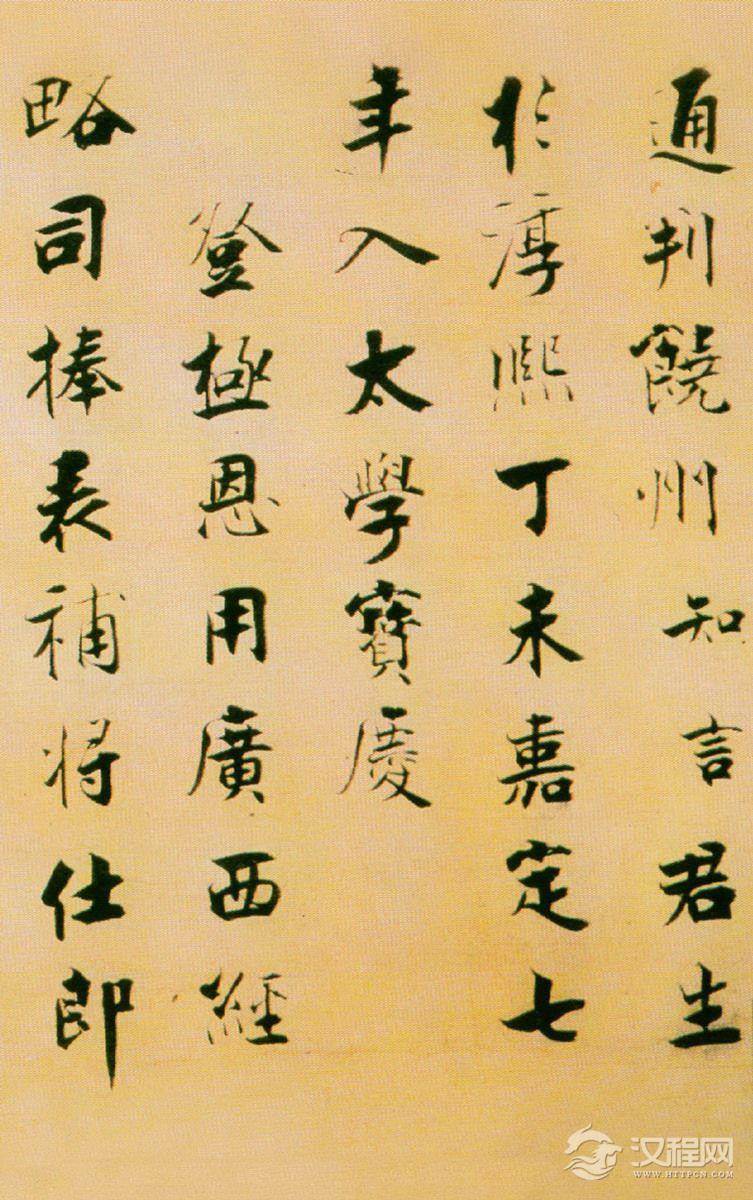 通判饒州知言君生
於淳熙丁未嘉定七
年入太學寶慶
登極恩用廣西經
略司捧表補將仕郎
汉程网
WWW.HTTPCN.COM